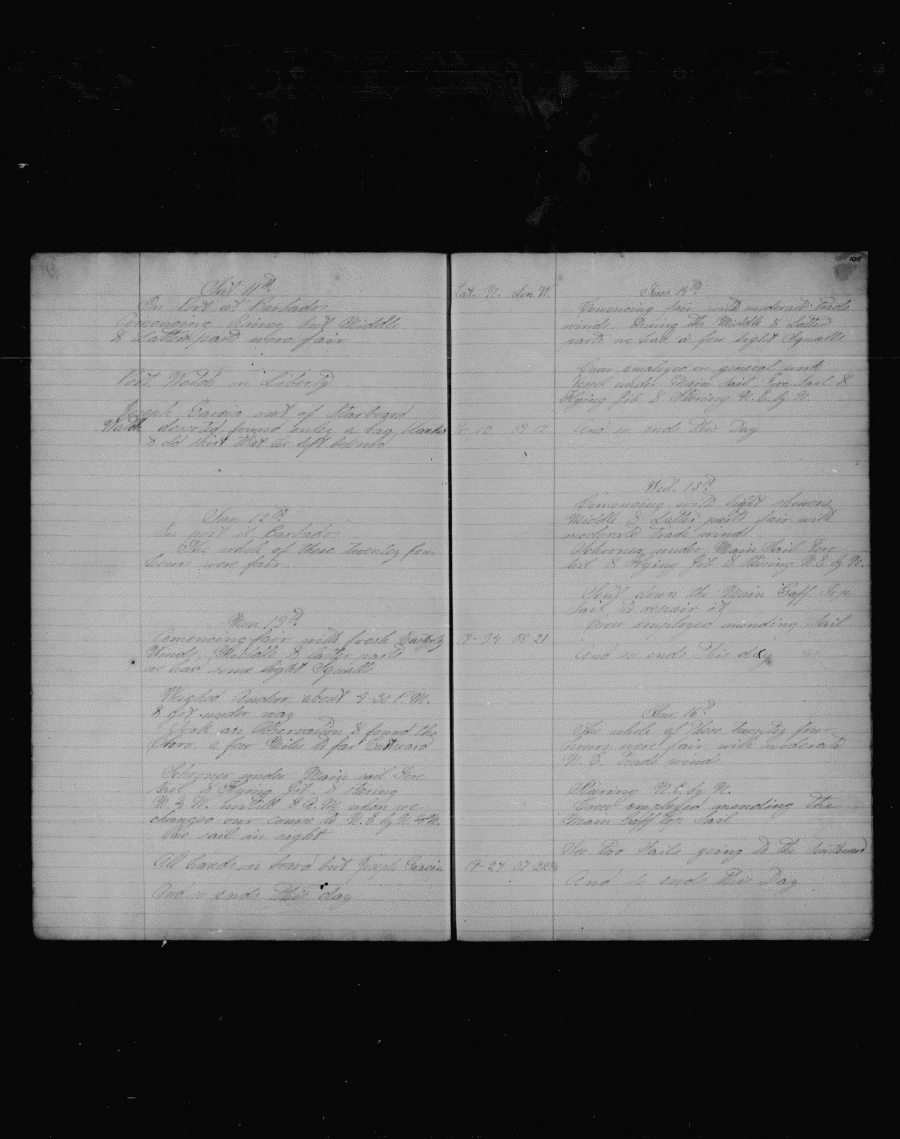 Sat 11th
In Port at Barbados
Comencing Rainey but Middle
& Latter part were fair
Port Watch on Liberty
Joseph Garcia out of Starboard
Watch deserted found only a bag blanket
& old shirt that he left behind
Sun 12th
In port at Barbados
The whole of these twenty four
hours were fair.
Mon 13th
Comencing fair with fresh Easterly
Winds, Middle & latter parts
we had some light Squalls
Weighed Anchor about 4-30 P.M.
& got under way
Took an Observation & found the
Chro. a few Miles to far Eastward
Schooner under Main sail Fore
sail & Flying Jib & stering
N. & W. untill 8 P.M. when we
changed our course to N.E. by N. & N.
One sail in sight
All hands on board but Joseph Garcia
And so ends this day
105
Lat. N. Lon W.
Tues 14th
Comencing fair with moderate trade
winds. During the Middle & Latter
parts we had a few light Squalls
Crew employed in general work
Vessel under Main Sail Fore Sail &
Flying Jib & Stering N.E. by N.
59-17 And so ends This Day
Wed. 15th
Comencing with light showers
Middle & Latter parts fair with
moderate trade winds
Schooner under Main Sail Fore
sail & Flying Jib & Stering N.E. by N.
Sent down the Main Gaff Top
sail to repair it
Crew employed mending Sail
And so ends This day
58-21
Thur 16th
The whole of these twenty four
hours were fair with moderate
N.E. Trade winds
Stering N.E. by N.
Crew employed mending the
Main Gaff Top Sail
See two Sails going to the
19-27
And so ends This Day